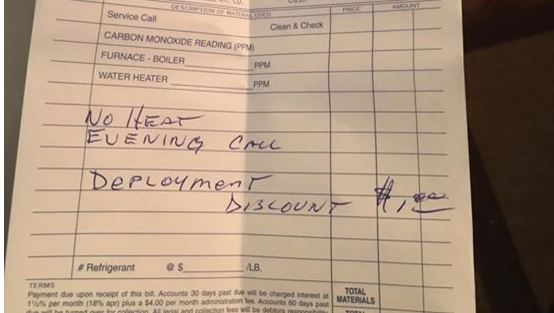 DESCRIPTION OF MATERIAL USED PRICE AMOUNT
Service Call Clean & Check
CARBON MONOXIDE READING (PPM)
FURNACE - BOILER PPM
WATER HEATER PPM
NO HEAT
EVENING CALL
DEPLOYMENT
DISCOUNT $1,00
# Refrigerant @ $ /LB.
TERMS
Payment due upon receipt of this bill. Accounts 30 days past due will be charged interest at
1½% per month (18% apr) plus a $4.00 per month administration fee. Accounts 60 days past
due will be turned over for collection. All legal and collection fees will be debtors responsibility
TOTAL
MATERIALS
TOTAL